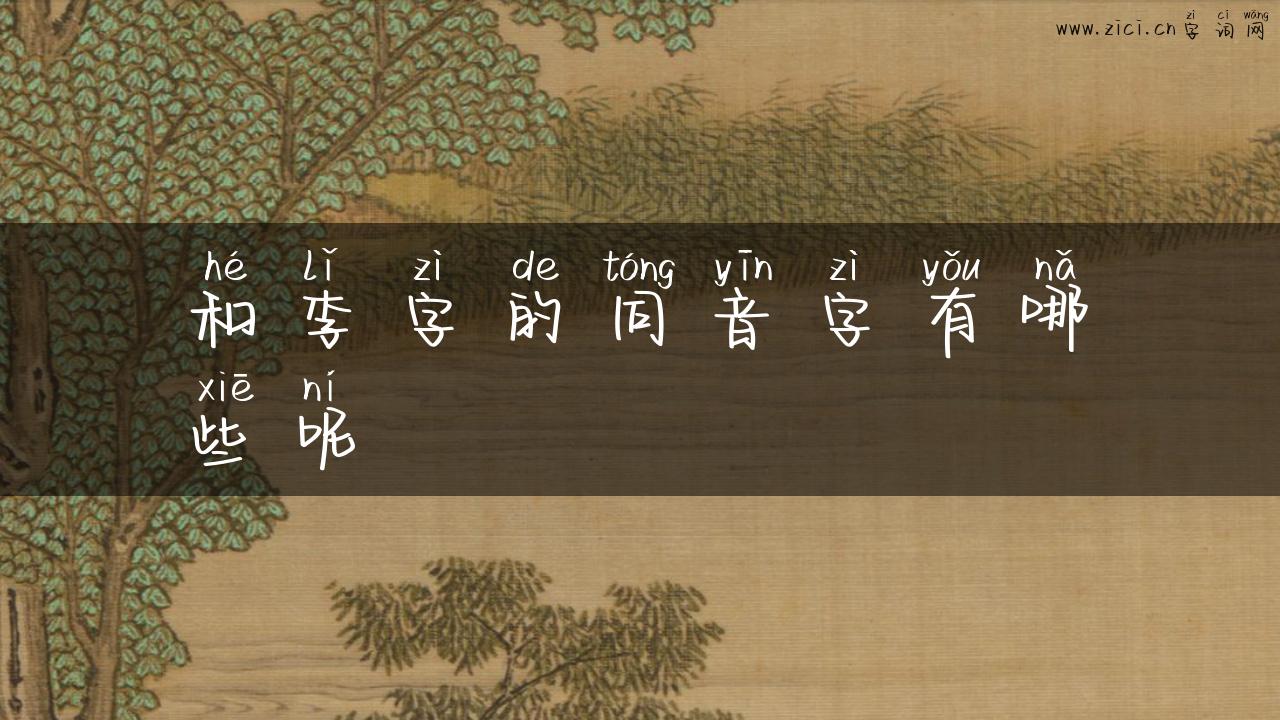 www.zici.cn zì cí wǎng
字词网
hé lǐ zì de tóng yīn zì yǒu nǎ
和李字的同音字有哪
xiē ní
些呢